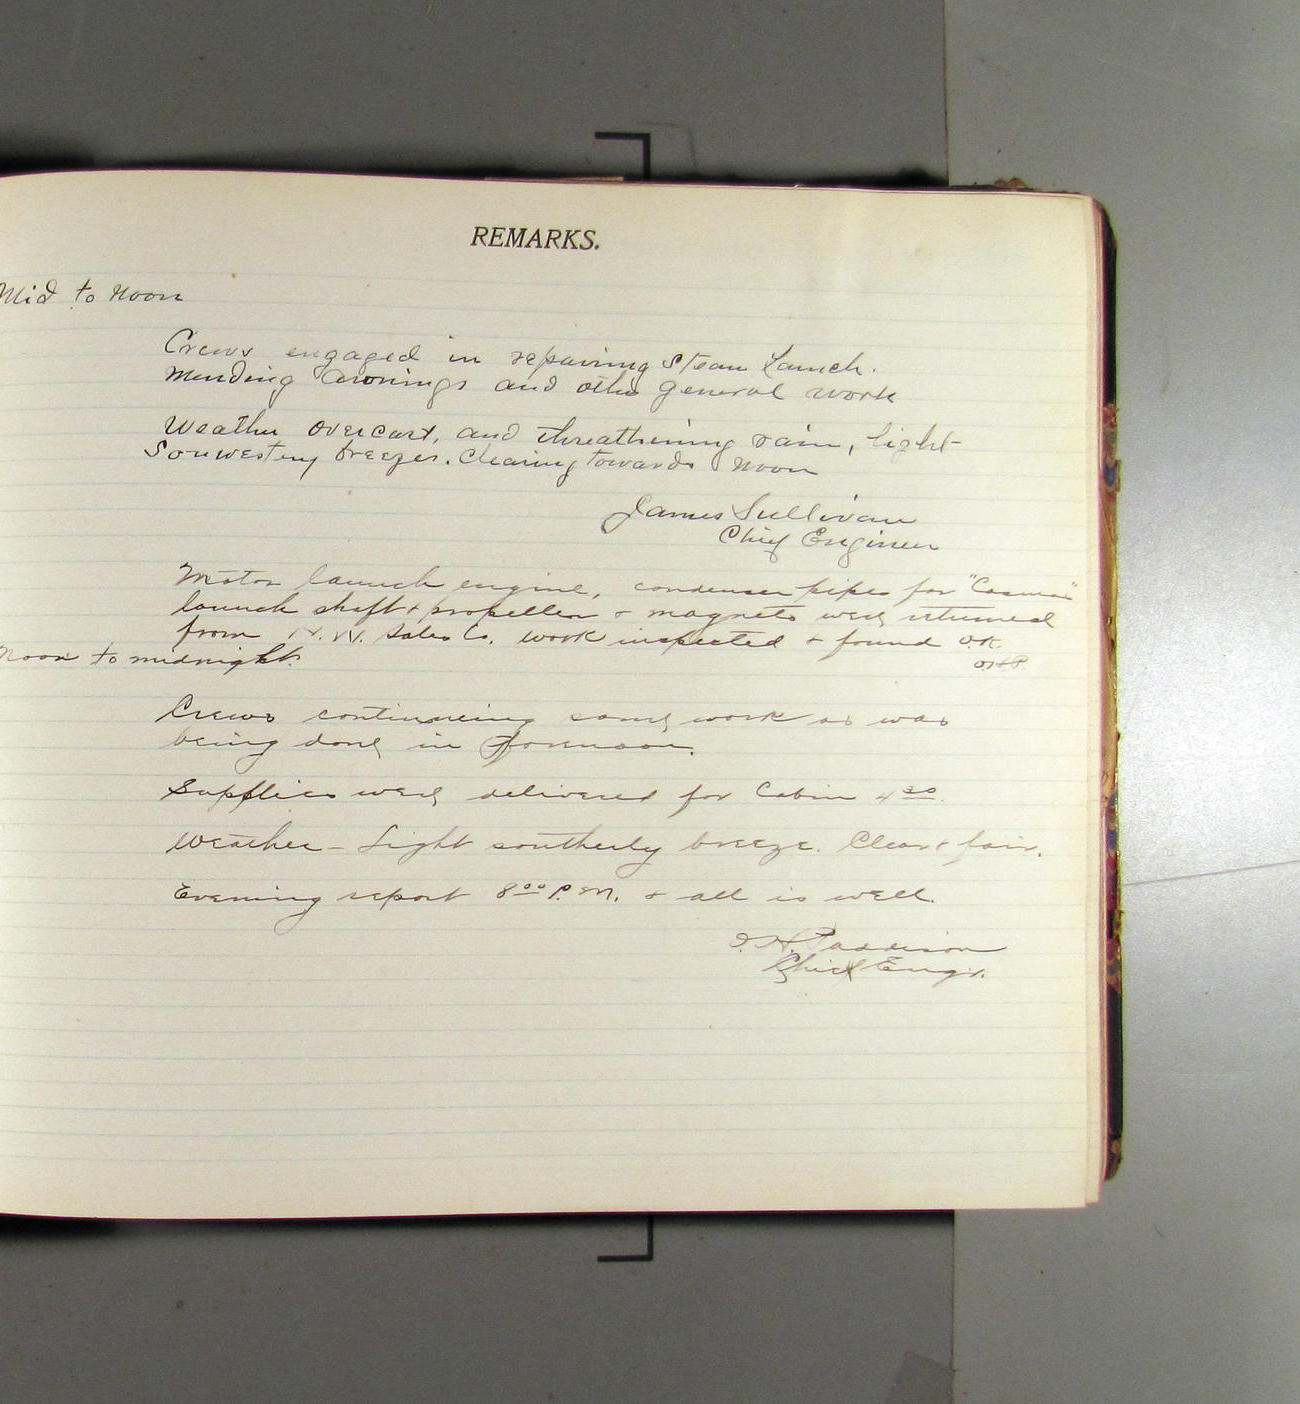 REMARKS.
Mid to Noon
Crews engaged in repairing Steam Launch.
Mending awnings and other general work
Weather overcast, and threathining rain, light
Souwesterly breezes. Clearing towards Noon
James Sullivan
Chief Engineer
Motor launch engine, condenser pipes for "Cosmos"
launch shaft + propeller + magneto were returned
from N. W. Sales Co. work inspected + found O.K.
Noon to midnight.
Crews continueing same work as was
being done in forenoon.
Supplies were delivered for Cabin 4 30.
Weather – Light southerly breeze. Clear + fair.
Evening report 8 00 P.M. + all is well.
H. Paddison
Chief Engr.